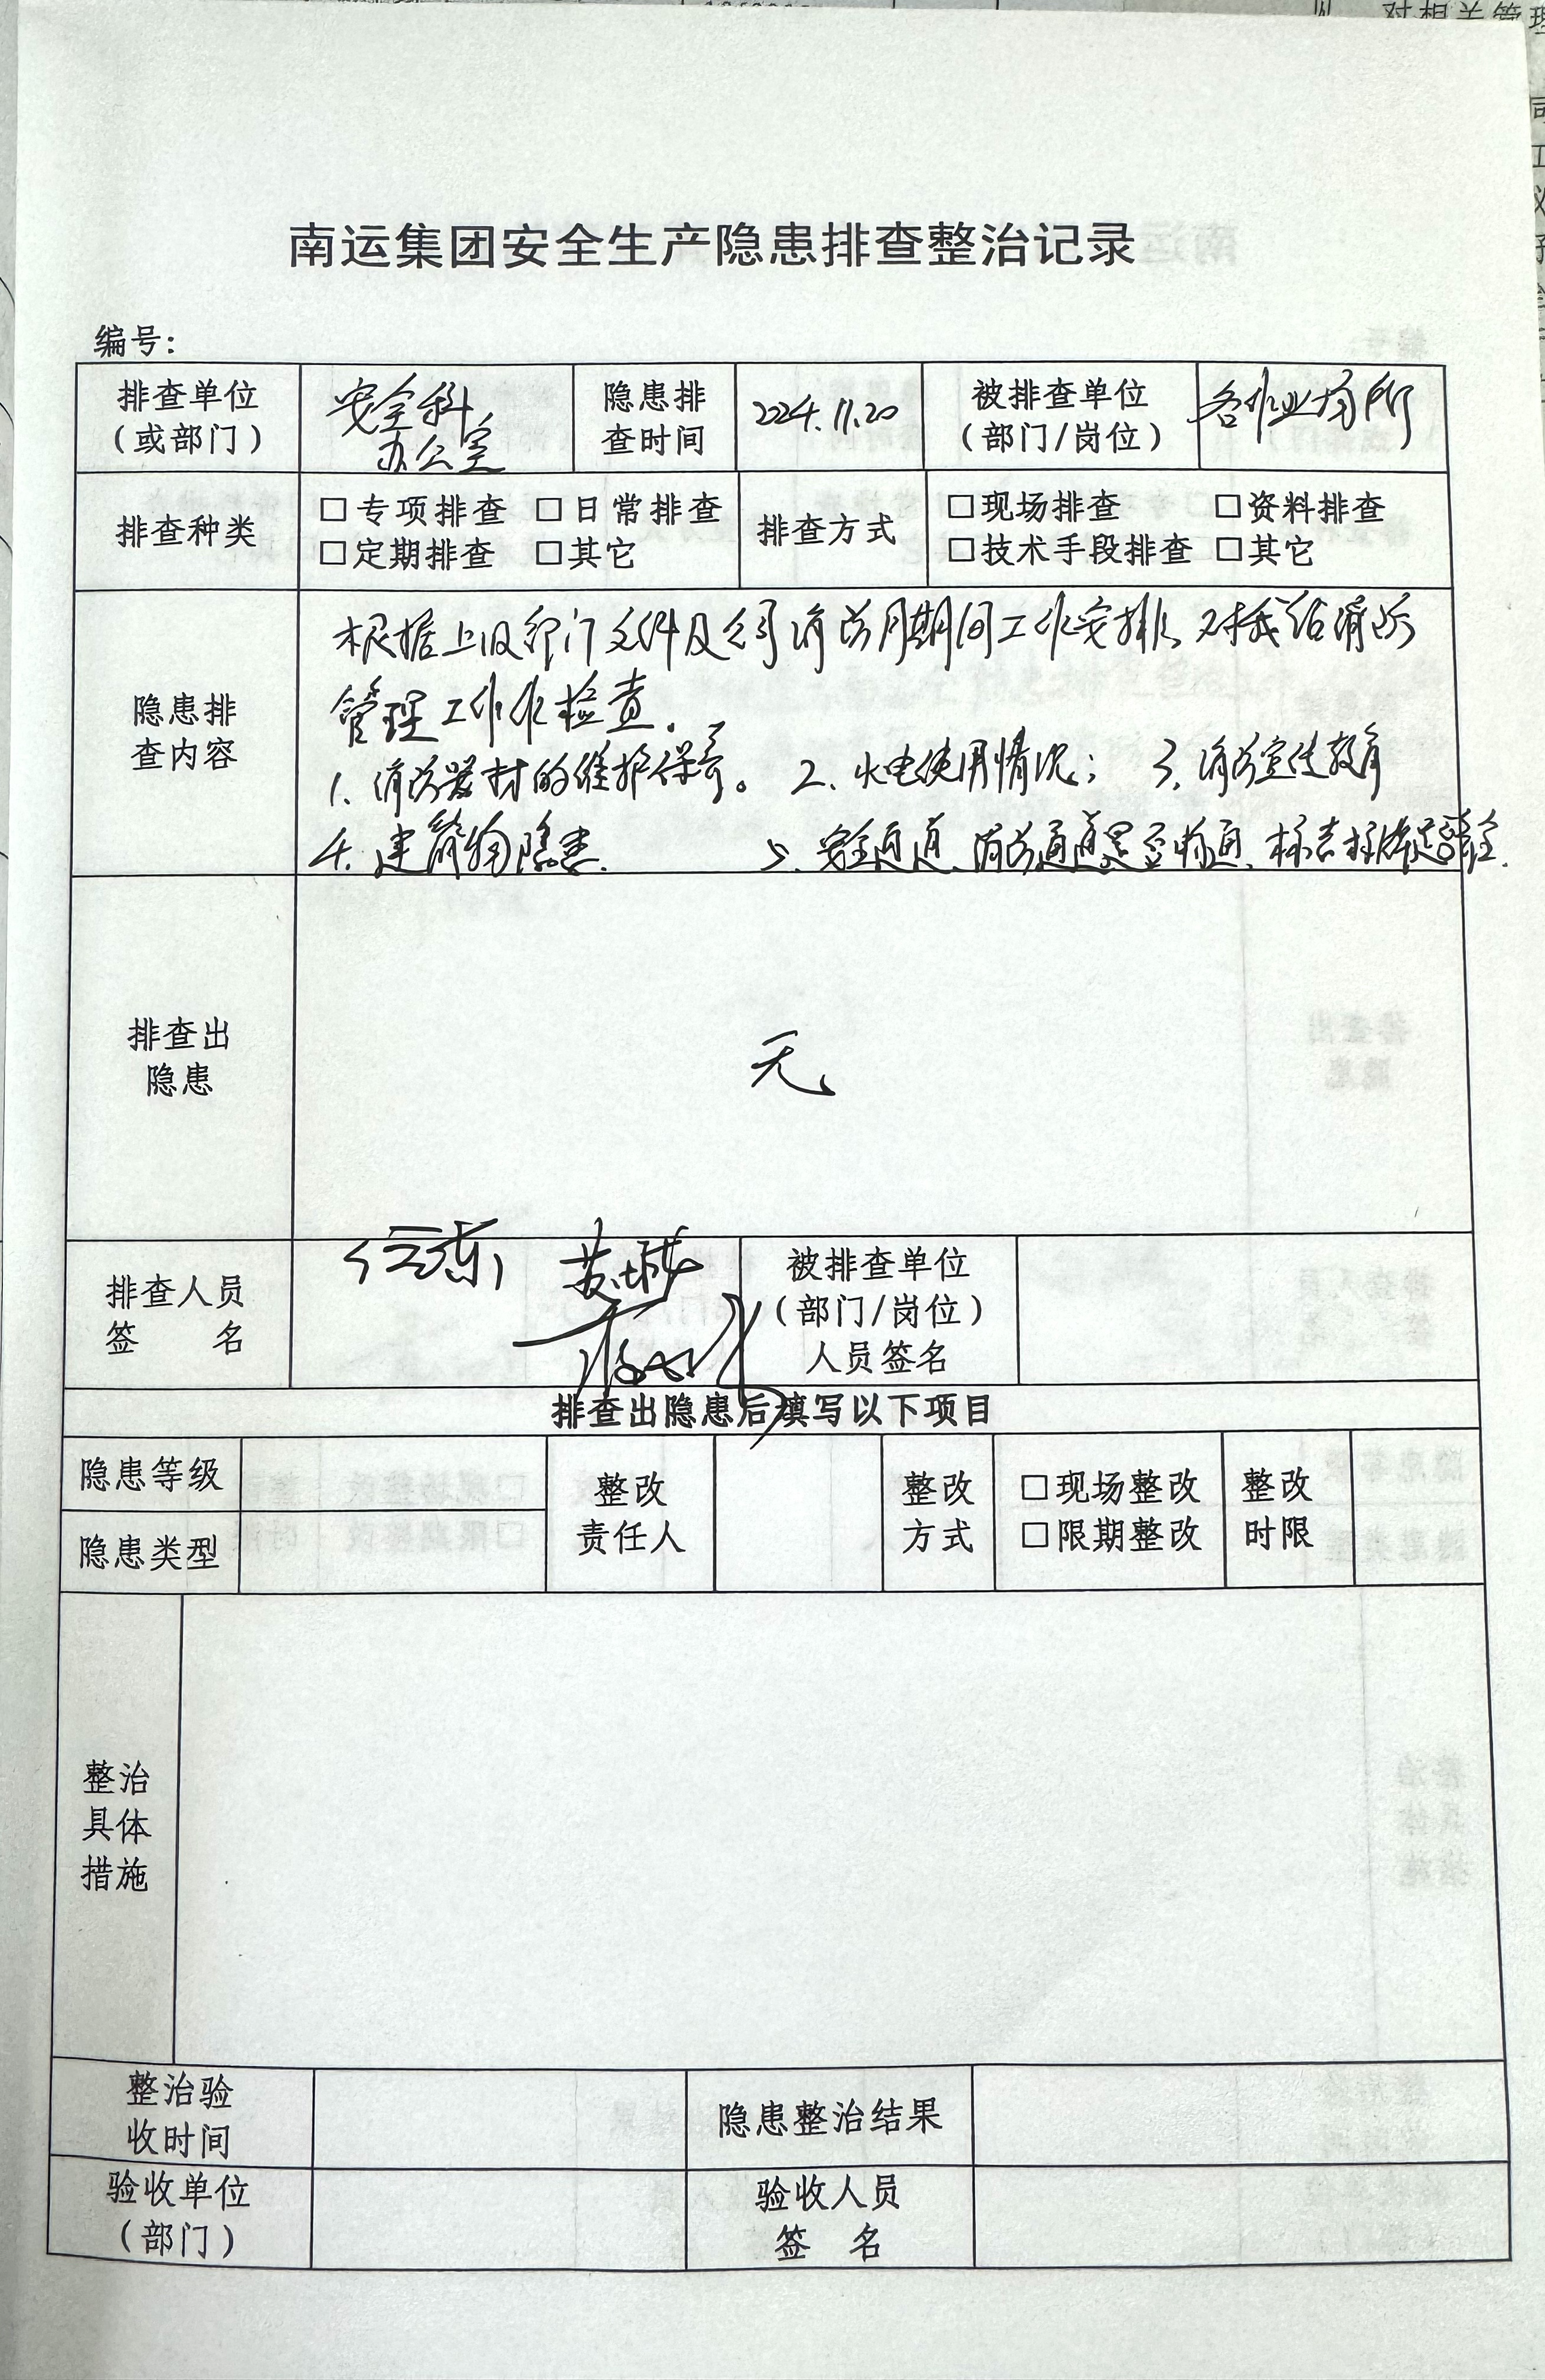 南运集团安全生产隐患排查整治记录
编号：
排查单位
（或部门）
安全科
办公室
隐患排
查时间
2024.11.20
被排查单位
（部门/岗位）
各作业场所
排查种类
□专项排查 □日常排查
□定期排查 □其它
排查方式
□现场排查 □资料排查
□技术手段排查 □其它
隐患排
查内容
根据上级部门文件及公司消防月期间工作安排、对我 消防
管理工作作检查。
1、消防器材的维护保养。 2、火电使用情况； 3、消防宣传教育
4、建筑物隐患、 5、安全通道、消防通道是否畅通、标志标牌是否齐全.
排查出
隐患
无、
排查人员
签 名
被排查单位
（部门/岗位）
人员签名
排查出隐患后填写以下项目
隐患等级
隐患类型
整改
责任人
整改
方式
□现场整改
□限期整改
整改
时限
整治
具体
措施
整治验
收时间
隐患整治结果
验收单位
（部门）
验收人员
签 名